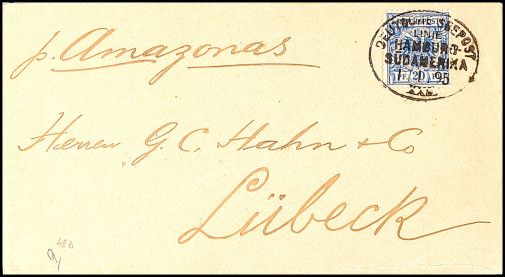 p. Amazonas
DEUTSCHE SEEPOST
LINIE
HAMBURG-
SÜDAMERIKA
95
Herren G. C. Hahn & Co
Lübeck
486